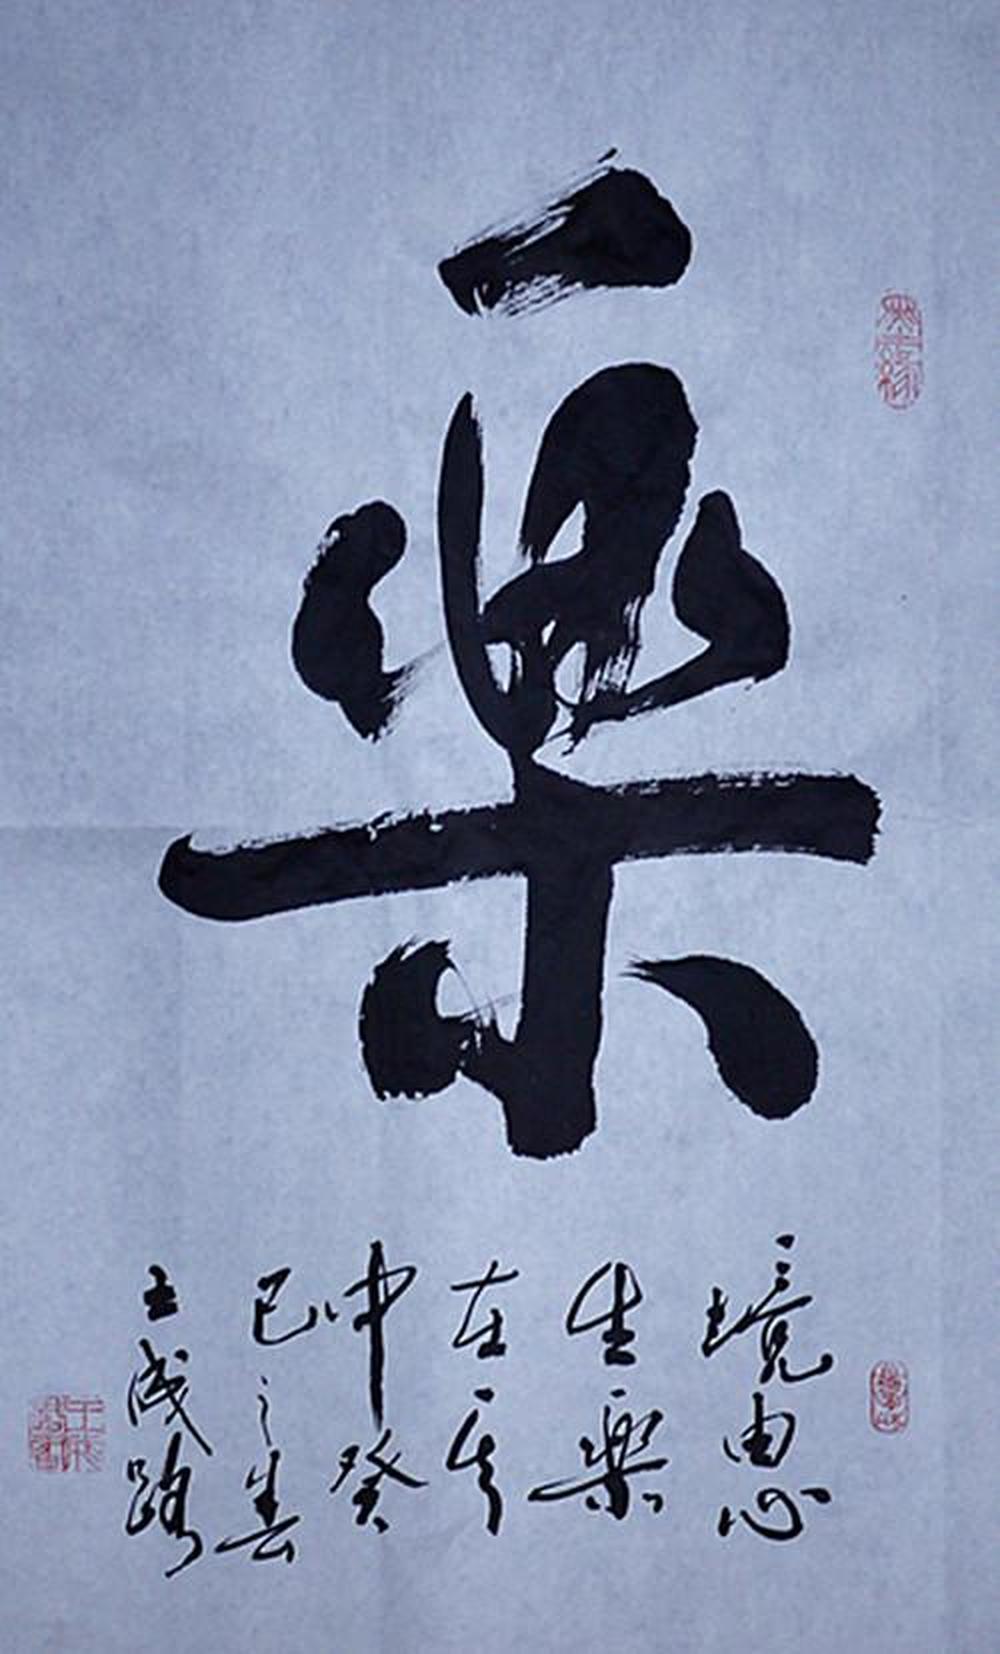 樂
境由心
生樂
在其
中癸
巳之春
王成路